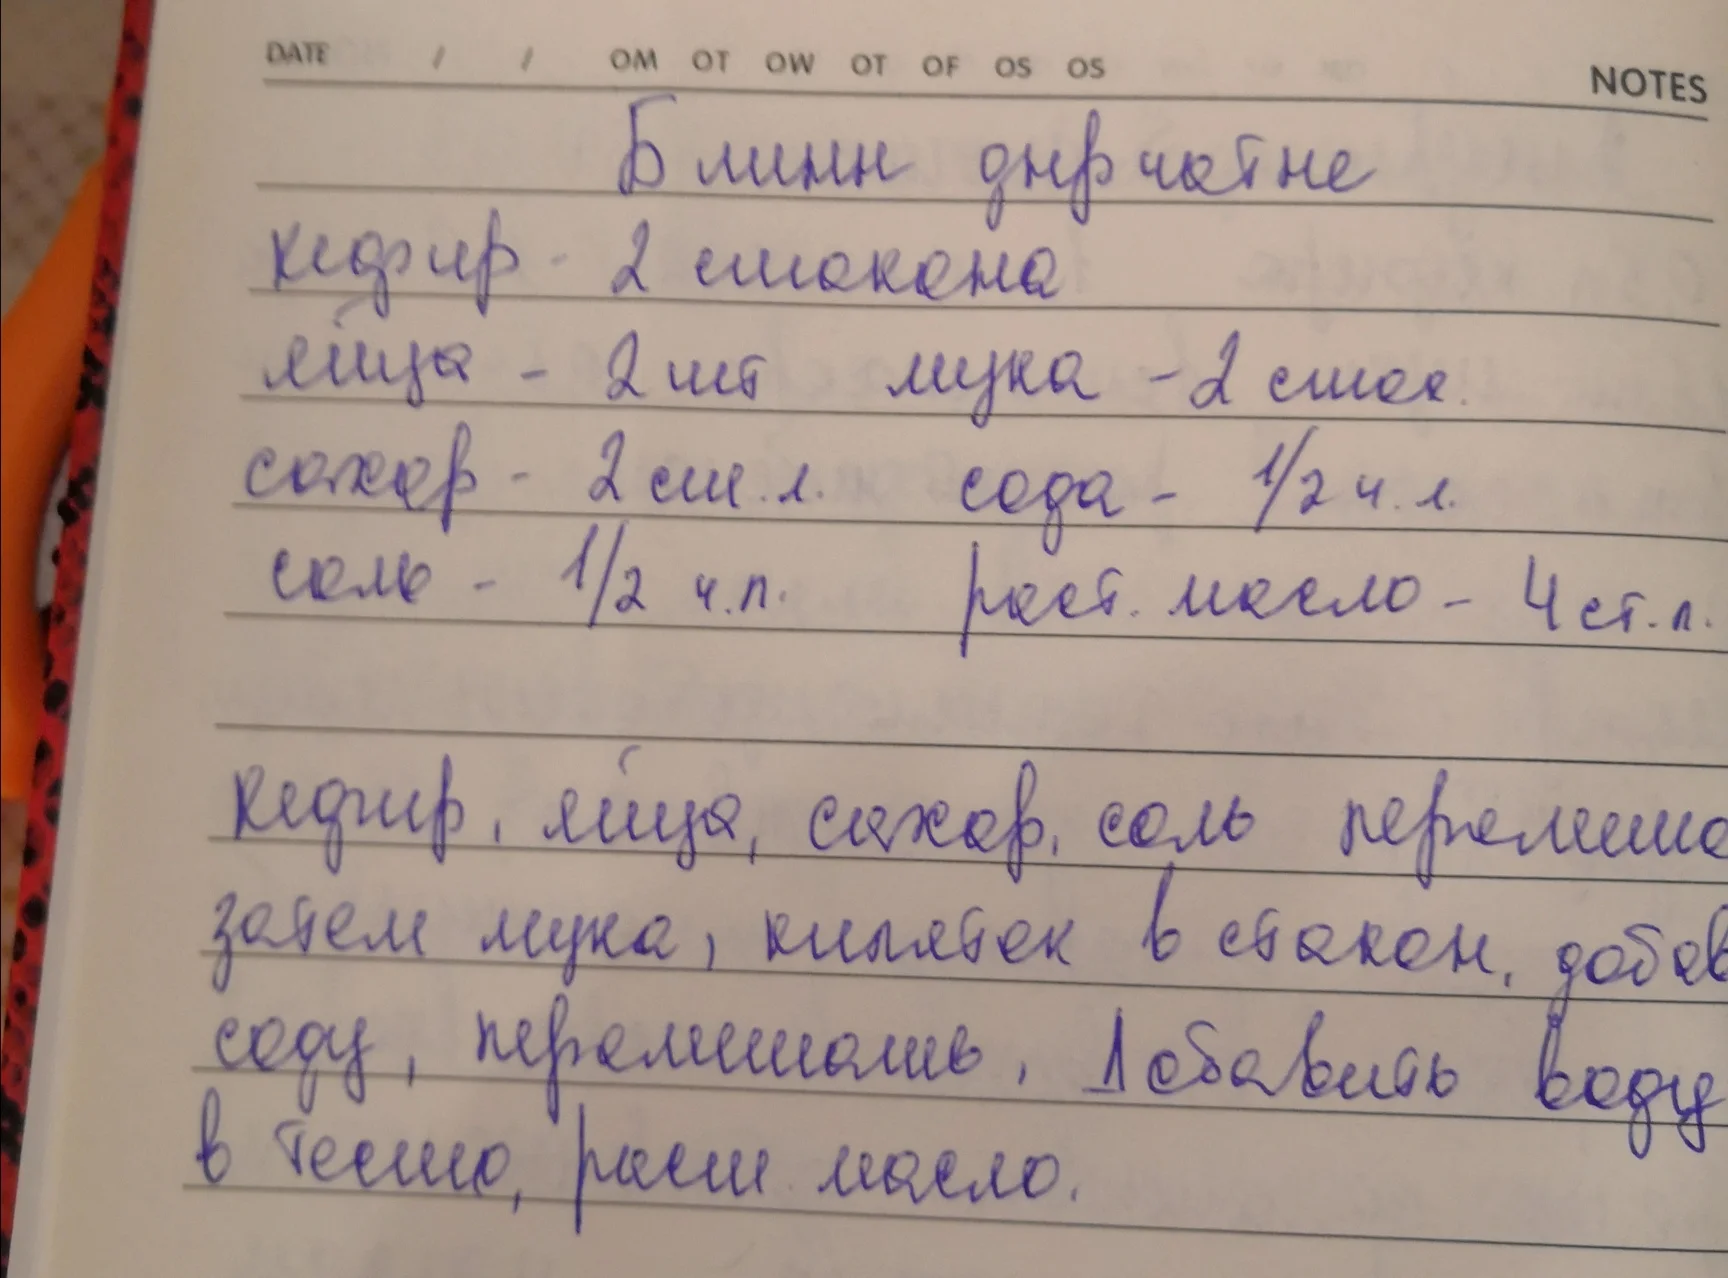 DATE / / OM OT OW OT OF OS OS NOTES
Блины дырчатые
кефир - 2 стакана
яйца - 2 шт мука - 2 стак.
сахар - 2 ст. л. сода - 1/2 ч. л.
соль - 1/2 ч.л. раст. масло - 4 ст.л.
кефир, яйца, сахар, соль перемеша
затем мука, кипяток в стакан, добав
соду, перемешать. Добавить воду
в тесто, раст масло.